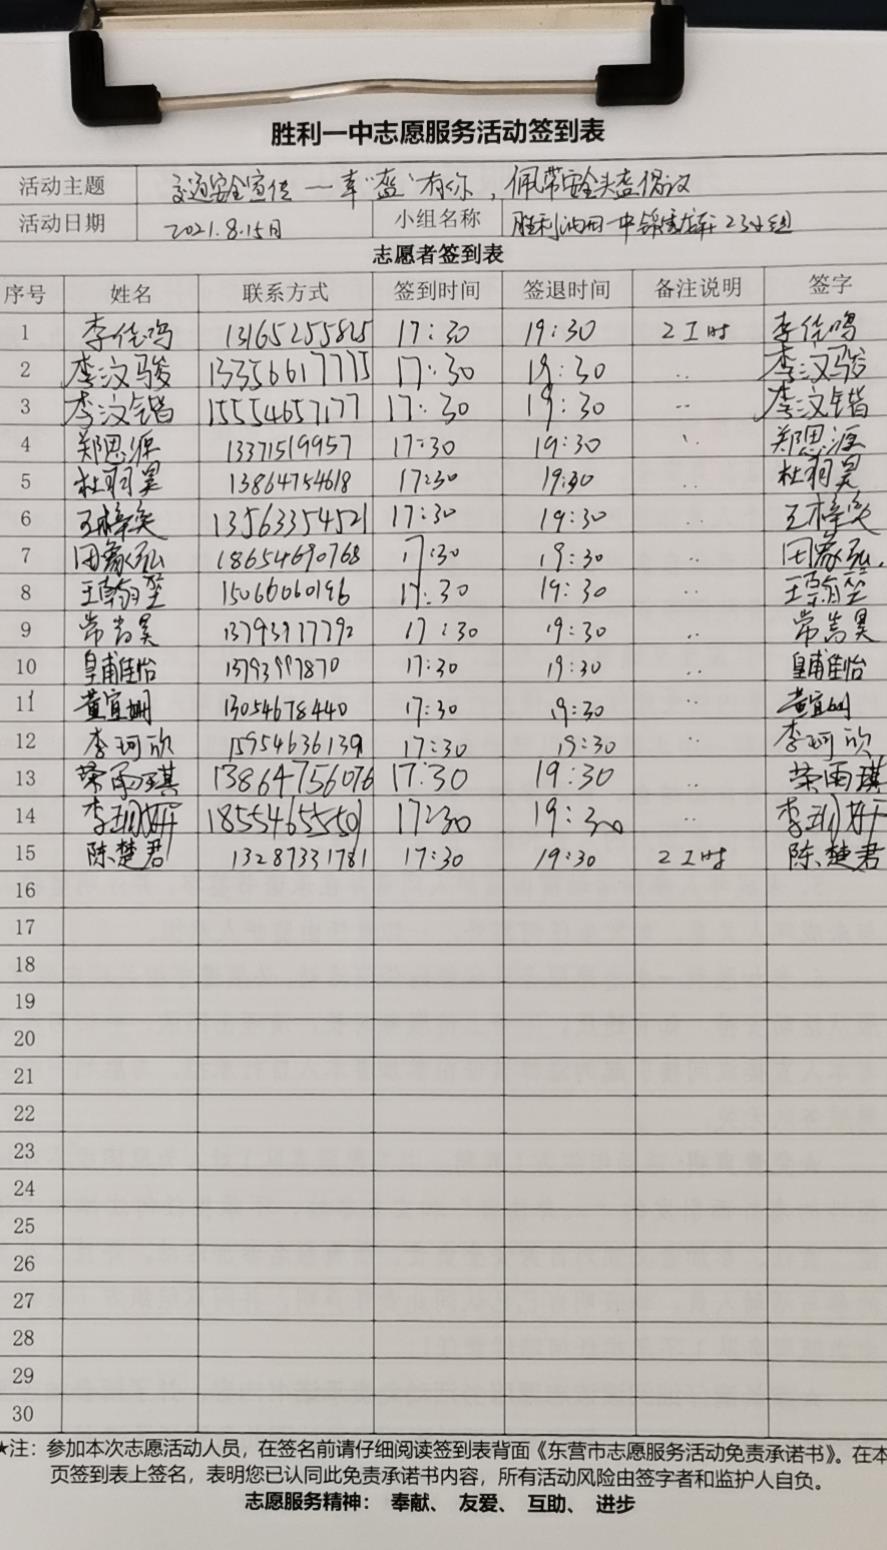 胜利一中志愿服务活动签到表
活动主题 交通安全宣传一幸"盔"有你，佩带安全头盔倡议
活动日期 2021.8.15日 小组名称 胜利油田一中 23小组
志愿者签到表
序号 姓名 联系方式 签到时间 签退时间 备注说明 签字
1 李佳鸣 13165255825 17:30 19:30 2工时 李佳鸣
2 李汶骏 13356617775 17:30 19:30 .. 李汶骏
3 李汶锴 15554657177 17:30 19:30 .. 李汶锴
4 郑思源 13371519957 17:30 19:30 .. 郑思源
5 杜羽昊 13864754618 17:30 19:30 .. 杜羽昊
6 王梓奕 13563354521 17:30 19:30 .. 王梓奕
7 田家弘 18654690768 17:30 19:30 .. 田家弘
8 王翰堃 15066060196 17:30 19:30 .. 王翰堃
9 常嵩昊 13793917792 17:30 19:30 .. 常嵩昊
10 皇甫佳怡 17:30 19:30 .. 皇甫佳怡
11 黄宜姗 13054678440 17:30 19:30 .. 黄宜姗
12 李珂欣 15954636139 17:30 19:30 .. 李珂欣
13 荣雨琪 13864756076 17:30 19:30 .. 荣雨琪
14 李玥妍 18554655501 17:30 19:30 .. 李玥妍
15 陈楚君 13287331781 17:30 19:30 2工时 陈楚君
16
17
18
19
20
21
22
23
24
25
26
27
28
29
30
★注：参加本次志愿活动人员，在签名前请仔细阅读签到表背面《东营市志愿服务活动免责承诺书》。在本
页签到表上签名，表明您已认同此免责承诺书内容，所有活动风险由签字者和监护人自负。
志愿服务精神： 奉献、 友爱、 互助、 进步